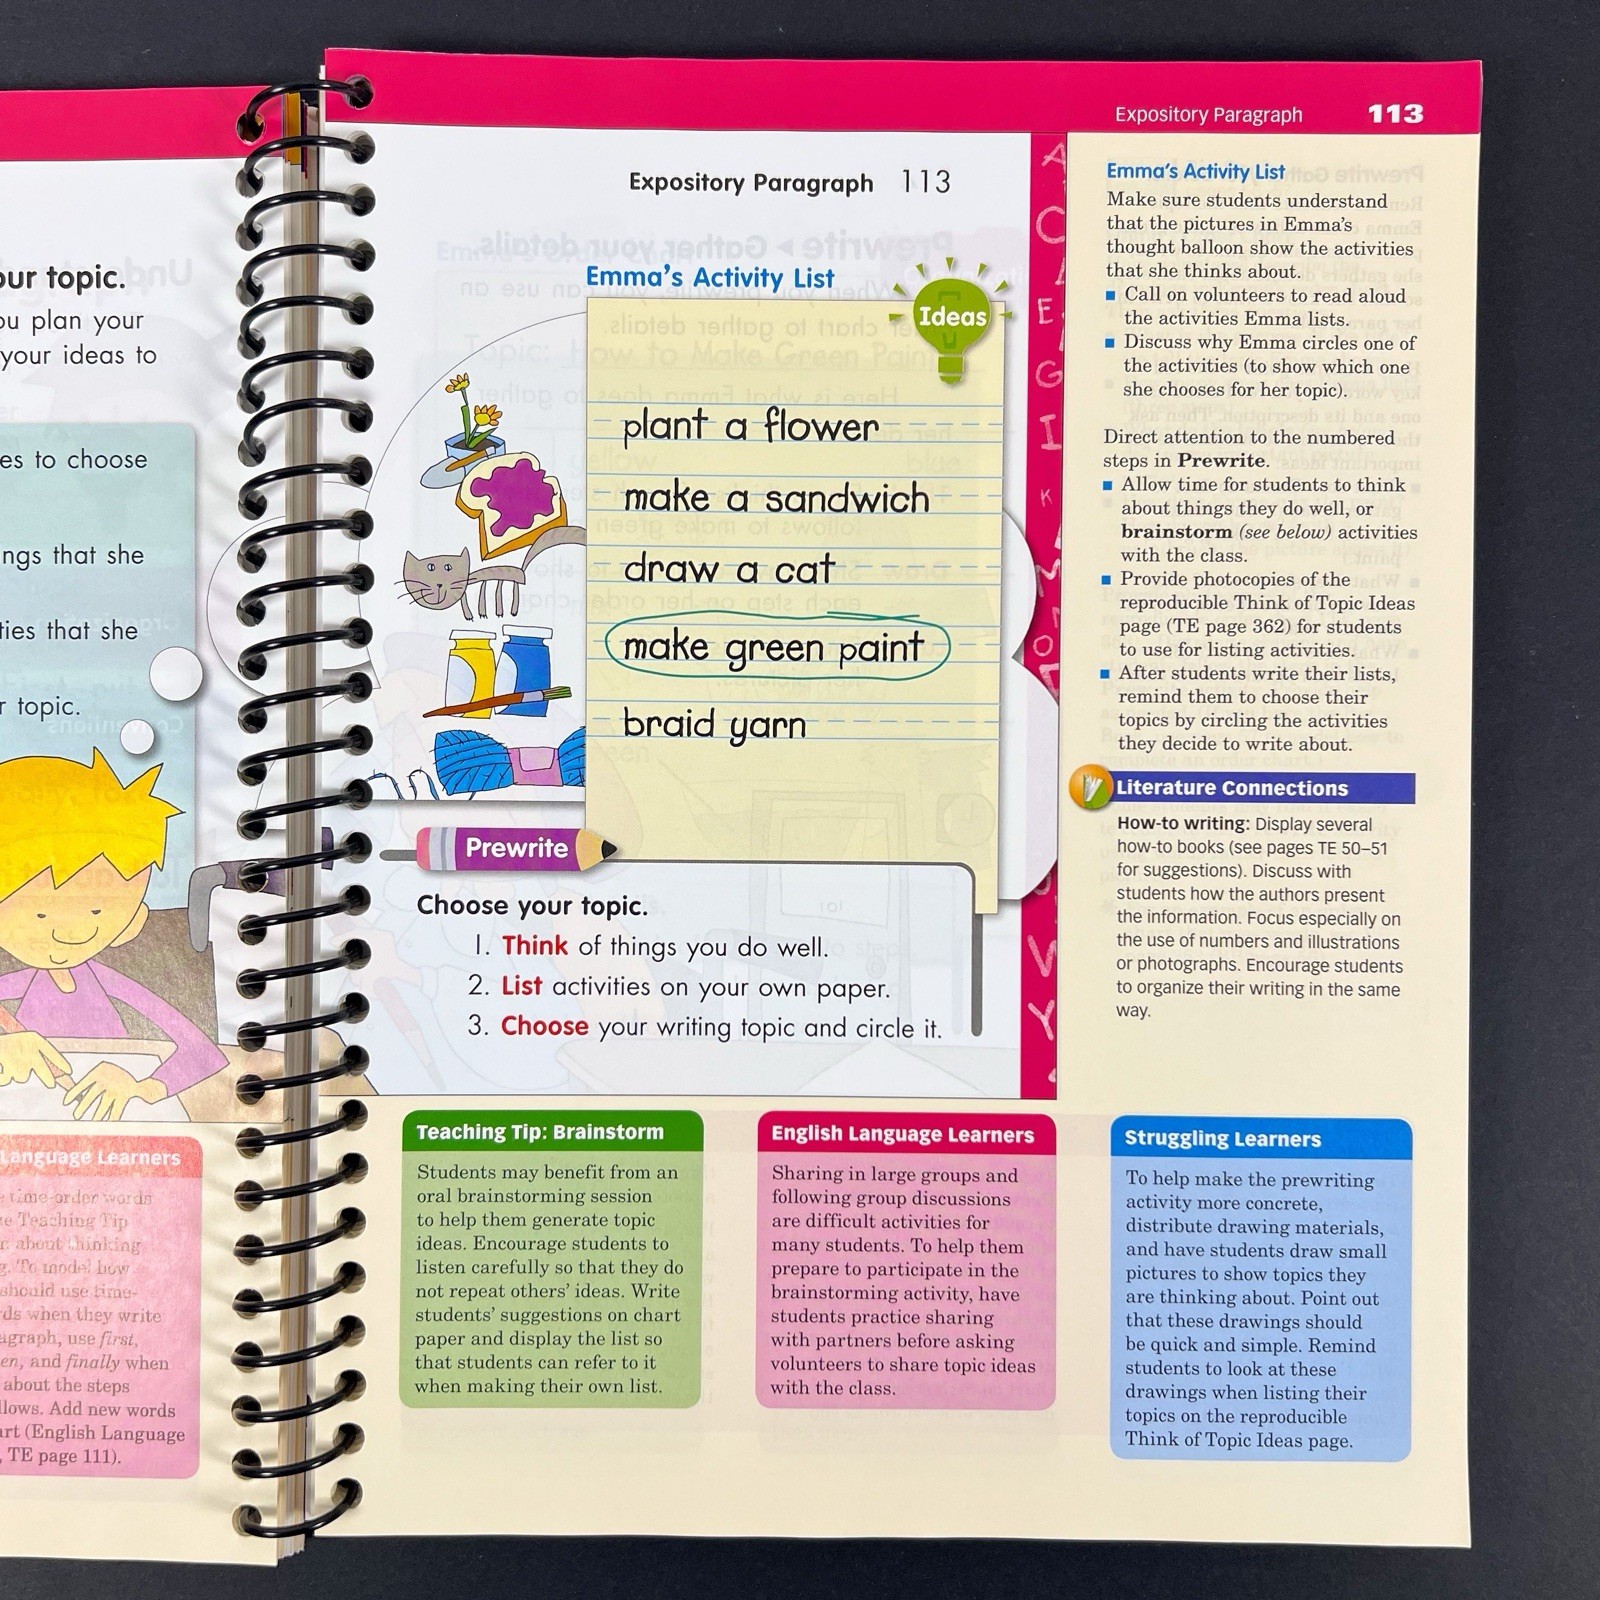 our topic.
ou plan your
your ideas to
es to choose
ngs that she
ties that she
r topic.
Language Learners
time-order words
Teaching Tip
about thinking
g. To model how
should use time-
ds when they write
agraph, use first,
en, and finally when
about the steps
llows. Add new words
art (English Language
, TE page 111).
Expository Paragraph 113
Expository Paragraph 113
Emma's Activity List
Ideas
plant a flower
make a sandwich
draw a cat
make green paint
braid yarn
Prewrite
Choose your topic.
1. Think of things you do well.
2. List activities on your own paper.
3. Choose your writing topic and circle it.
Emma's Activity List
Make sure students understand
that the pictures in Emma's
thought balloon show the activities
that she thinks about.
Call on volunteers to read aloud
the activities Emma lists.
Discuss why Emma circles one of
the activities (to show which one
she chooses for her topic).
Direct attention to the numbered
steps in Prewrite.
Allow time for students to think
about things they do well, or
brainstorm (see below) activities
with the class.
Provide photocopies of the
reproducible Think of Topic Ideas
page (TE page 362) for students
to use for listing activities.
After students write their lists,
remind them to choose their
topics by circling the activities
they decide to write about.
Literature Connections
How-to writing: Display several
how-to books (see pages TE 50–51
for suggestions). Discuss with
students how the authors present
the information. Focus especially on
the use of numbers and illustrations
or photographs. Encourage students
to organize their writing in the same
way.
Teaching Tip: Brainstorm
Students may benefit from an
oral brainstorming session
to help them generate topic
ideas. Encourage students to
listen carefully so that they do
not repeat others' ideas. Write
students' suggestions on chart
paper and display the list so
that students can refer to it
when making their own list.
English Language Learners
Sharing in large groups and
following group discussions
are difficult activities for
many students. To help them
prepare to participate in the
brainstorming activity, have
students practice sharing
with partners before asking
volunteers to share topic ideas
with the class.
Struggling Learners
To help make the prewriting
activity more concrete,
distribute drawing materials,
and have students draw small
pictures to show topics they
are thinking about. Point out
that these drawings should
be quick and simple. Remind
students to look at these
drawings when listing their
topics on the reproducible
Think of Topic Ideas page.